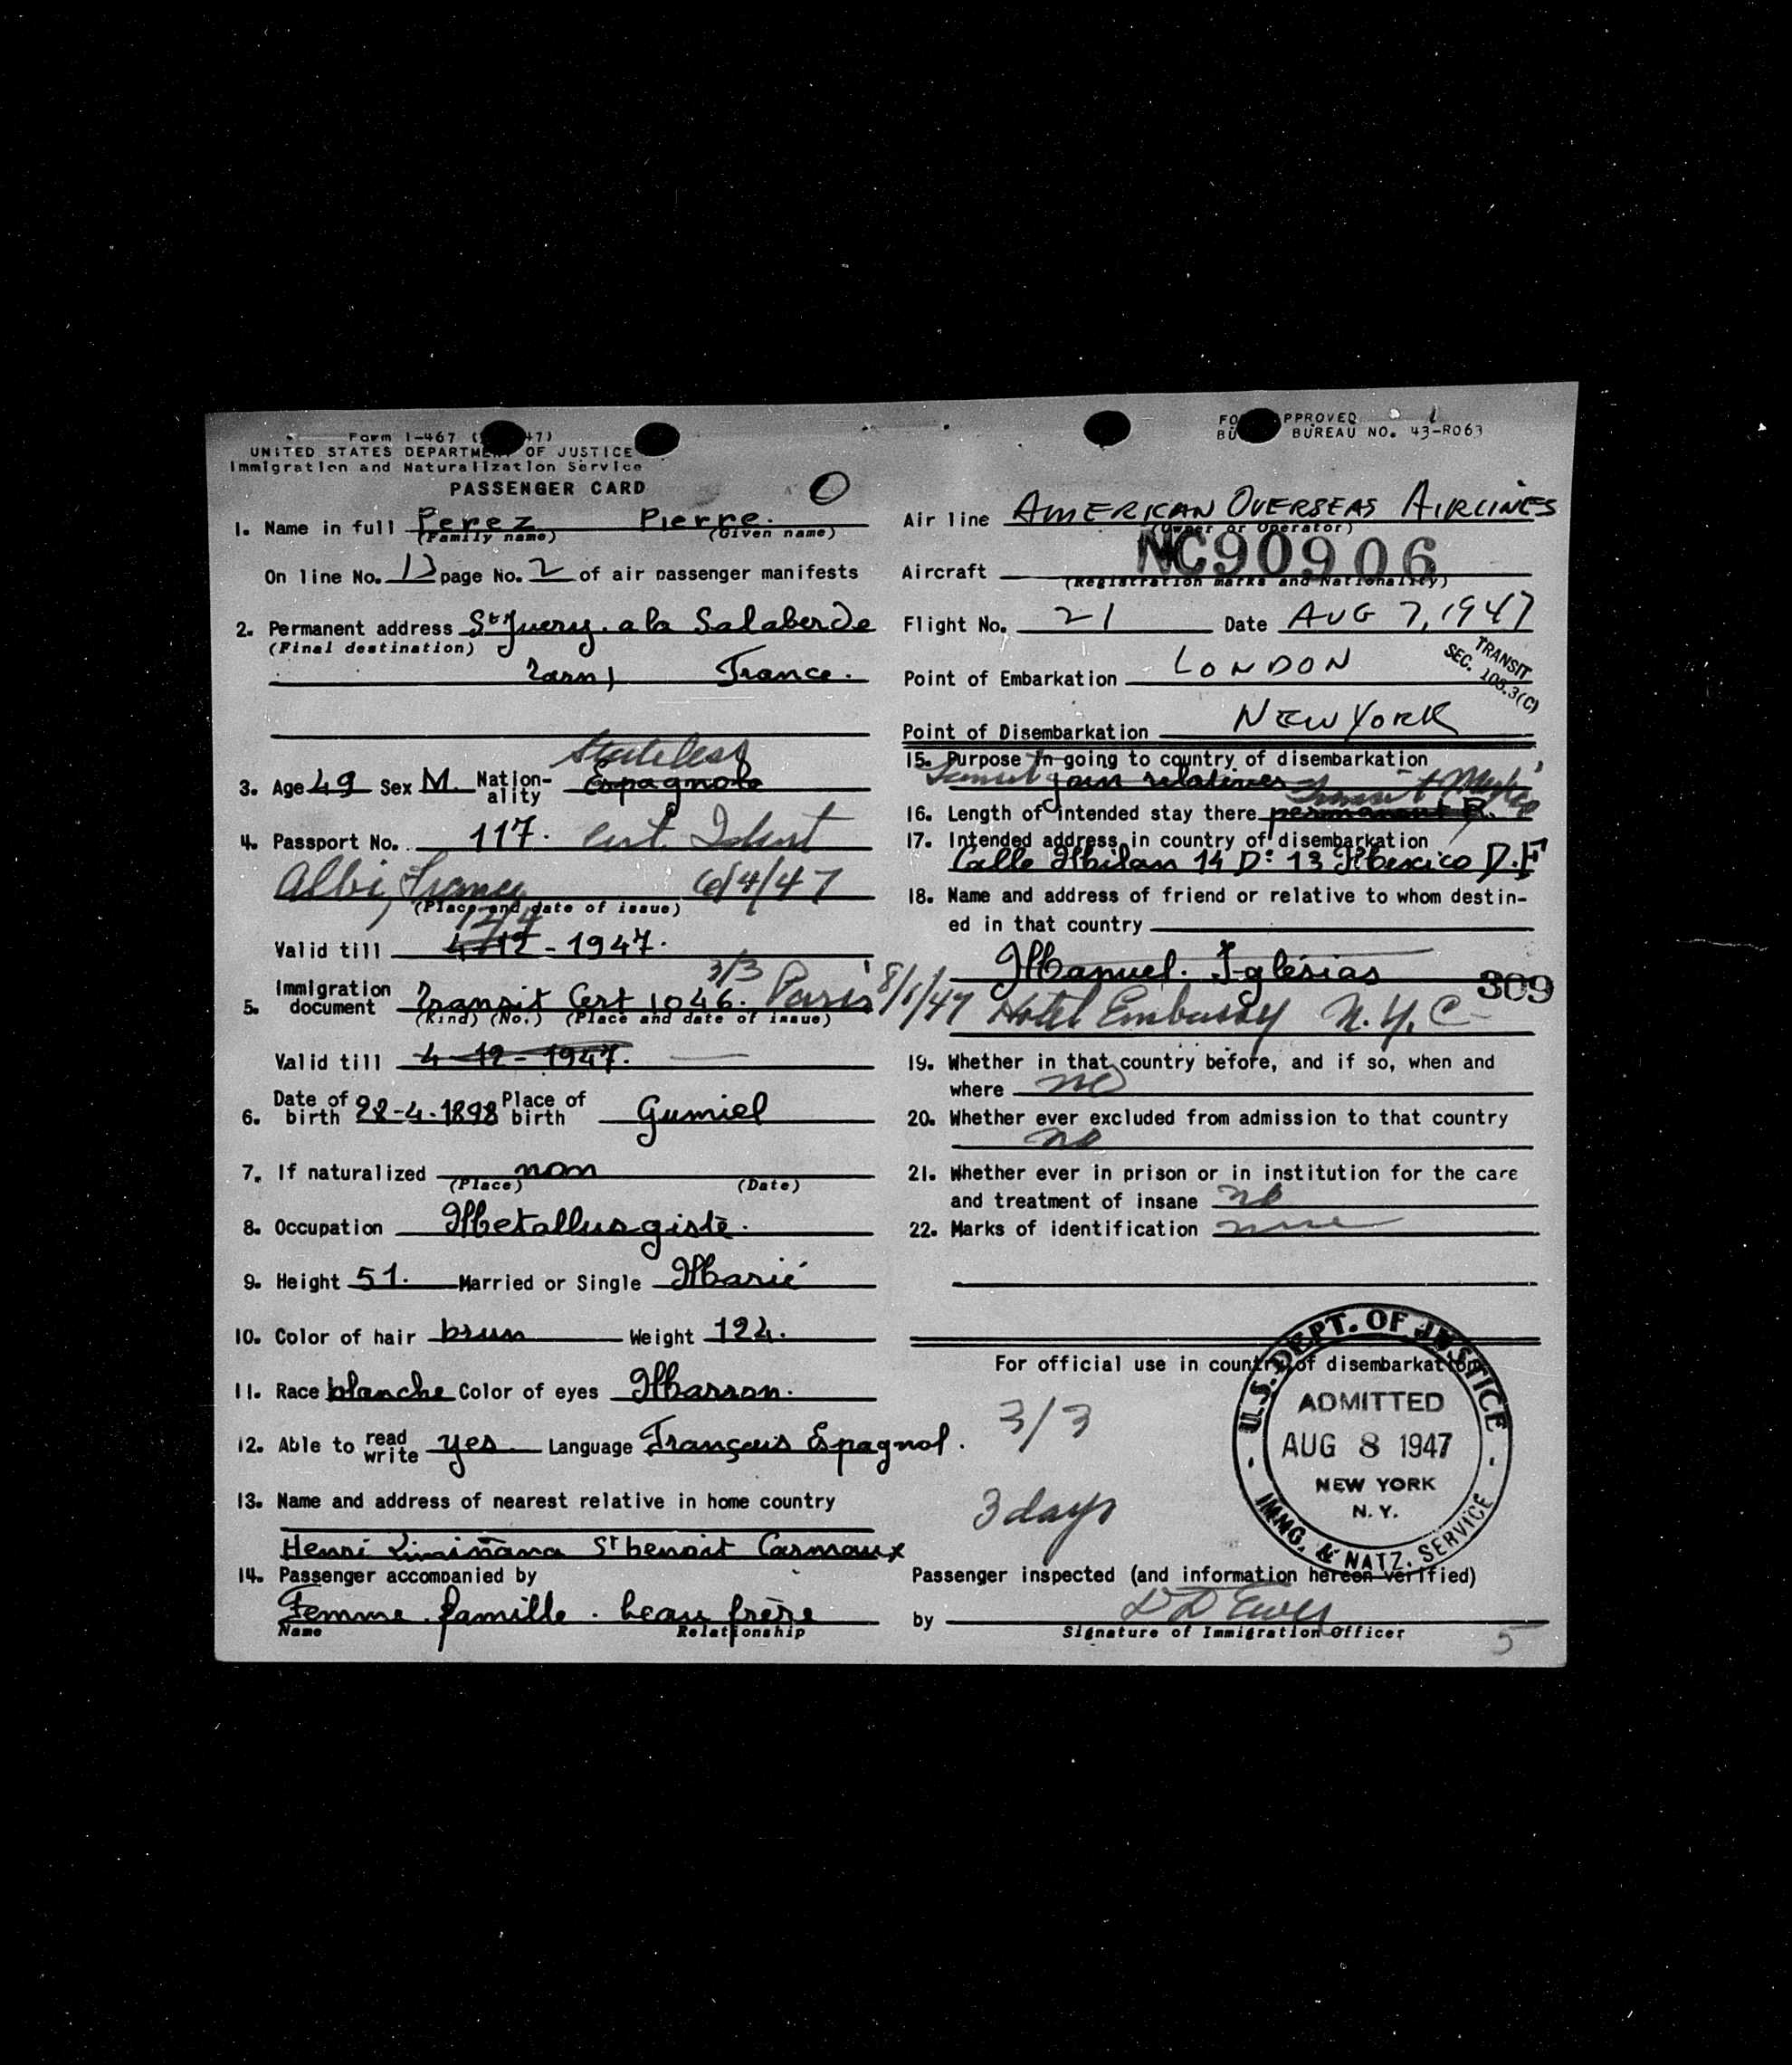 Form I-467 ( 47)
UNITED STATES DEPARTMENT OF JUSTICE
Immigration and Naturalization Service
PASSENGER CARD
O
FO PPROVED
BU BUREAU NO. 43-R063
1. Name in full Perez Pierre.
(Family name) (Given name)
On line No. 13 page No. 2 of air passenger manifests
2. Permanent address St Juery. a la Salaberde
(Final destination)
Tarn) France.
Stateless
3. Age 49 Sex M. Nationality Espagnole
4. Passport No. 117. Cert. Ident
Albi, France 6/4/47
(Place and date of issue)
12/4
Valid till 4-12-1947.
3/3
5. Immigration document Transit Cert 1046. Paris 8/1/47
(Kind) (No.) (Place and date of issue)
Valid till 4-12-1947.
6. Date of birth 28-4-1898 Place of birth Gumiel
7. If naturalized non
(Place) (Date)
8. Occupation Metallurgiste.
9. Height 51. Married or Single Marié
10. Color of hair brun Weight 124.
11. Race blanche Color of eyes Marron.
12. Able to read write yes Language Français Espagnol.
13. Name and address of nearest relative in home country
Henri Liminana St benoit Carmaux
14. Passenger accompanied by
Femme. famille. beau frère
Name Relationship
Air line AMERICAN OVERSEAS AIRLINES
(Owner or Operator)
Aircraft NC90906
(Registration marks and Nationality)
Flight No. 21 Date AUG 7, 1947
Point of Embarkation LONDON
TRANSIT
SEC. 108.3(C)
Point of Disembarkation NEW YORK
15. Purpose in going to country of disembarkation
Transit join relatives Transit Mexico
16. Length of intended stay there permanent R.
17. Intended address in country of disembarkation
Calle Milan 14 D: 13 Mexico D.F
18. Name and address of friend or relative to whom destined in that country
Manuel. Iglésias
309
Hotel Embassy N.Y.C
19. Whether in that country before, and if so, when and
where no
20. Whether ever excluded from admission to that country
no
21. Whether ever in prison or in institution for the care
and treatment of insane no
22. Marks of identification none
For official use in country of disembarkation
3/3
3 days
U.S. DEPT. OF JUSTICE
ADMITTED
AUG 8 1947
NEW YORK
N.Y.
IMMG. & NATZ. SERVICE
Passenger inspected (and information hereon verified)
by
Signature of Immigration Officer
5